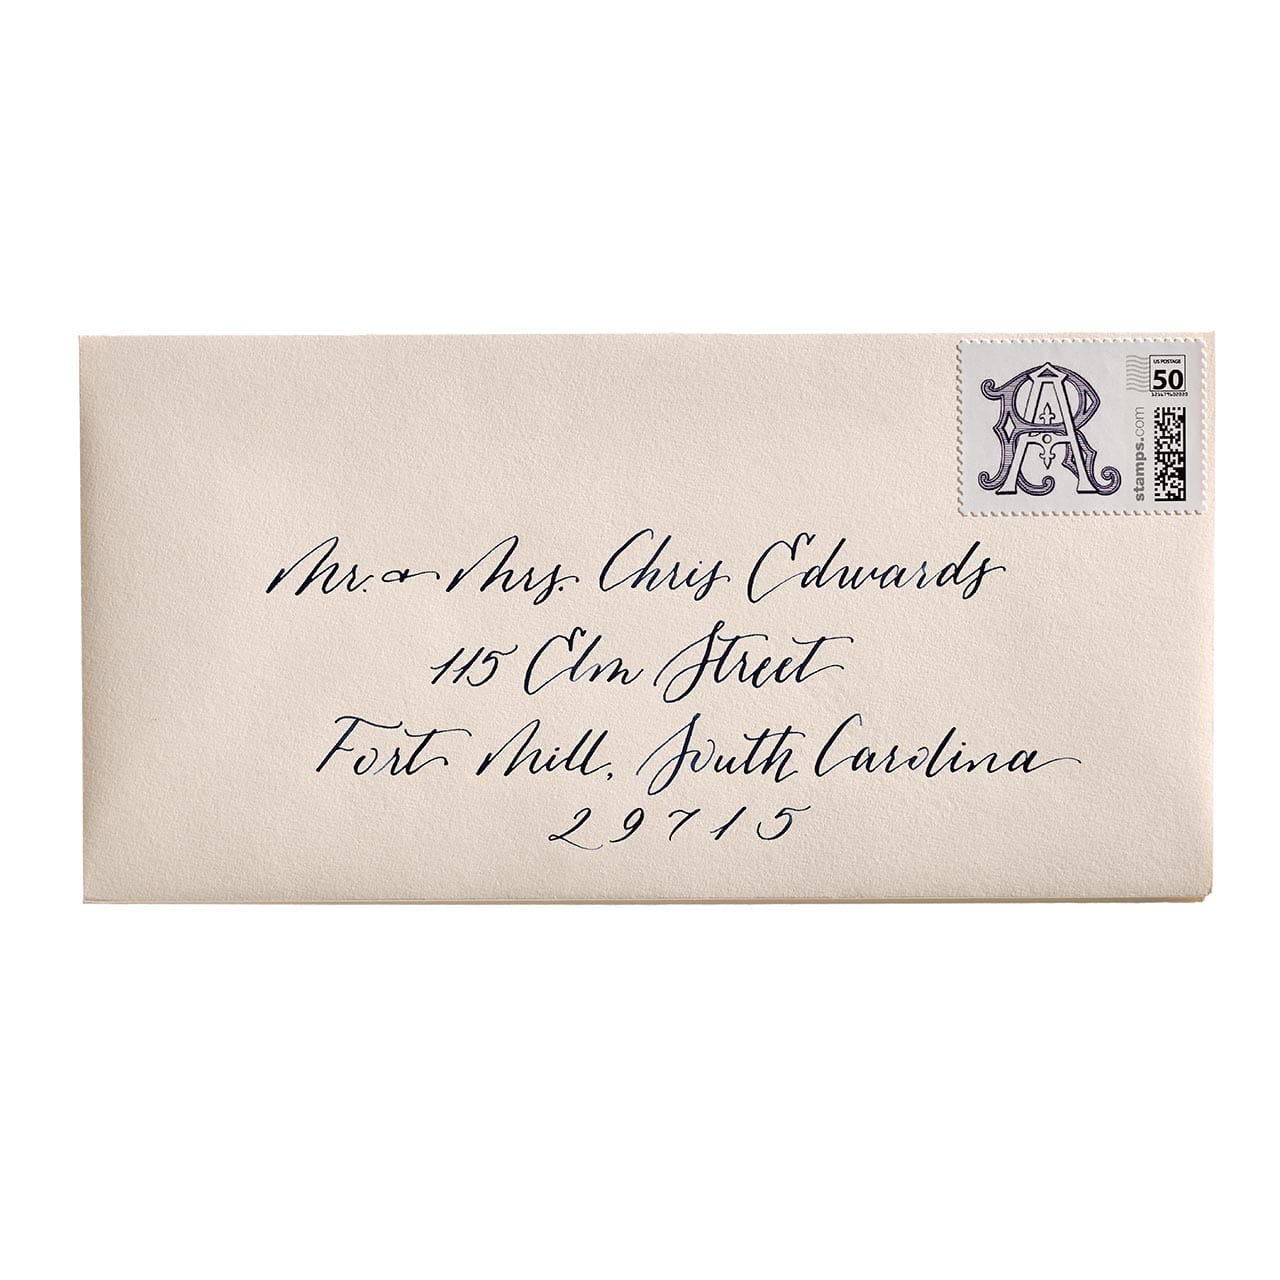 US POSTAGE
50
stamps.com
AR
Mr. & Mrs. Chris Edwards
115 Elm Street
Fort Mill, South Carolina
29715